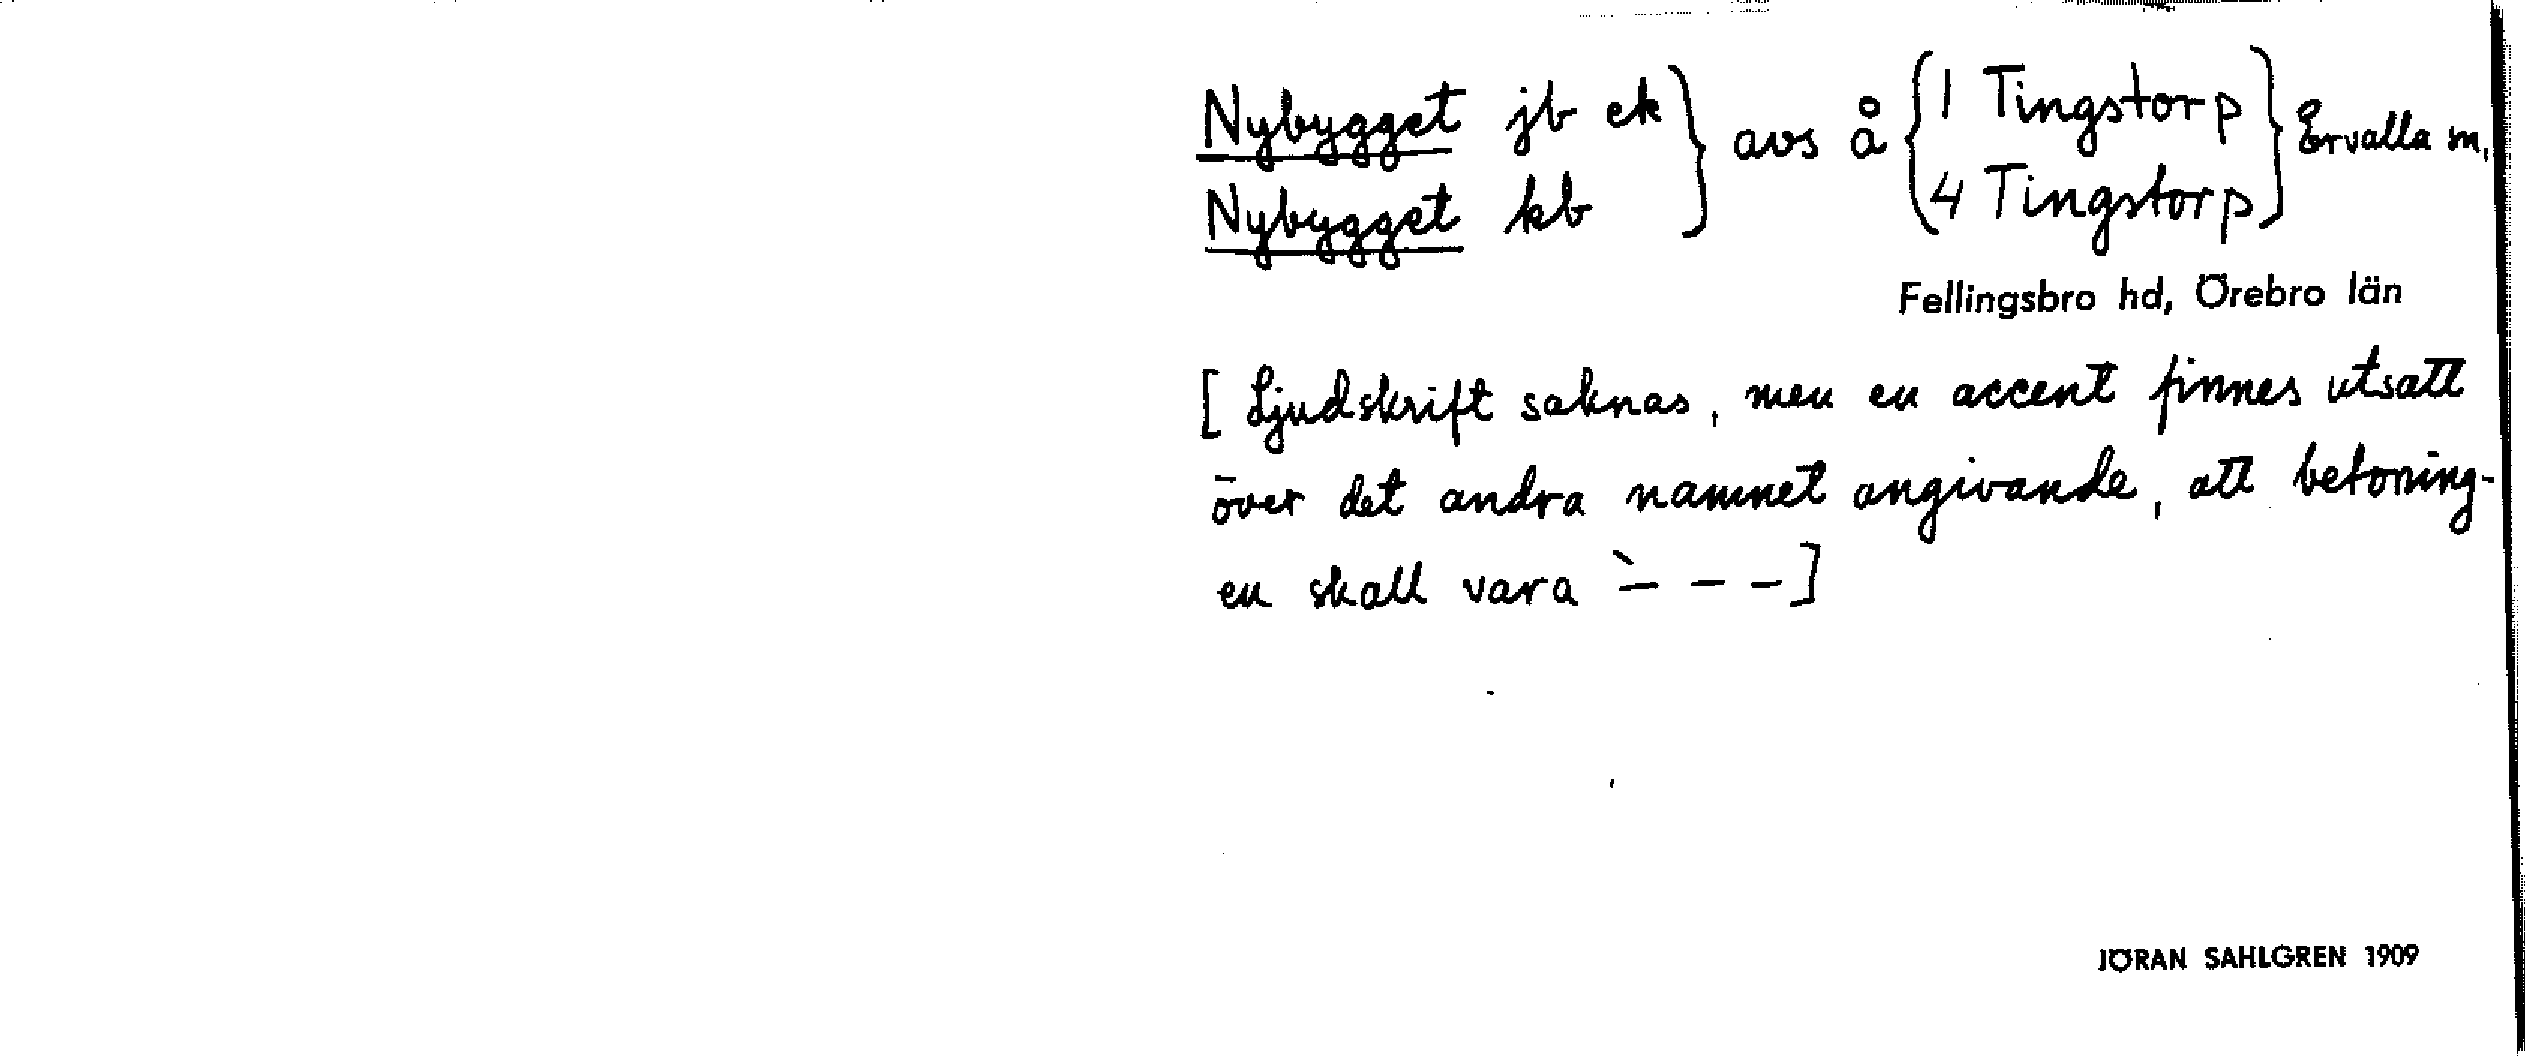 Nybygget jb ek } avs å { 1 Tingstorp } Ervalla sn,
Nybygget kb } { 4 Tingstorp }
Fellingsbro hd, Örebro län
[ Ljudskrift saknas, men en accent finnes utsatt
över det andra namnet angivande, att betoning-
en skall vara `— — —]
JÖRAN SAHLGREN 1909